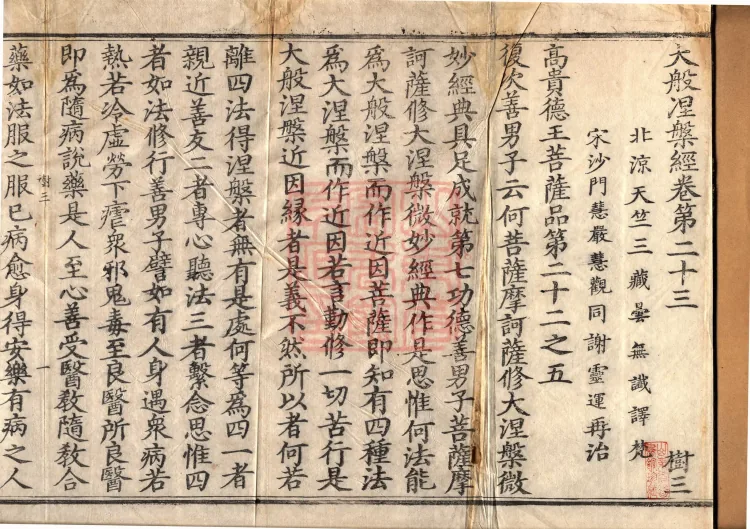 大般涅槃經卷第二十三 樹三
北涼天竺三藏曇無讖譯梵
宋沙門慧嚴慧觀同謝靈運再治
高貴德王菩薩品第二十二之五
復次善男子云何菩薩摩訶薩修大涅槃微
妙經典具足成就第七功德善男子菩薩摩
訶薩修大涅槃微妙經典作是思惟何法能
爲大般涅槃而作近因菩薩即知有四種法
爲大涅槃而作近因若言勤修一切苦行是
大般涅槃近因縁者是義不然所以者何若
離四法得涅槃者無有是處何等爲四一者
親近善友二者專心聽法三者繫念思惟四
者如法修行善男子譬如有人身遇衆病若
熱若冷虛勞下瘧衆邪鬼毒至良醫所良醫
即爲隨病說藥是人至心善受醫教隨教合
樹三 一
藥如法服之服已病愈身得安樂有病之人